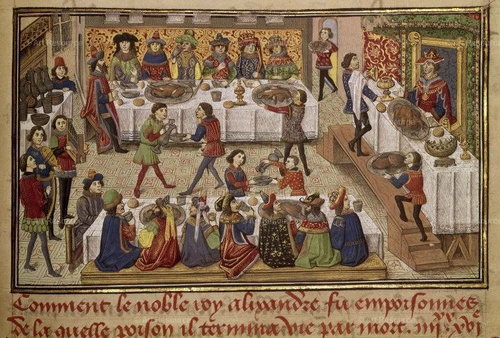 Comment le noble roy alixandre fu empoisonnes
de la quelle poison il termina vie par mort. iiij xx xvj